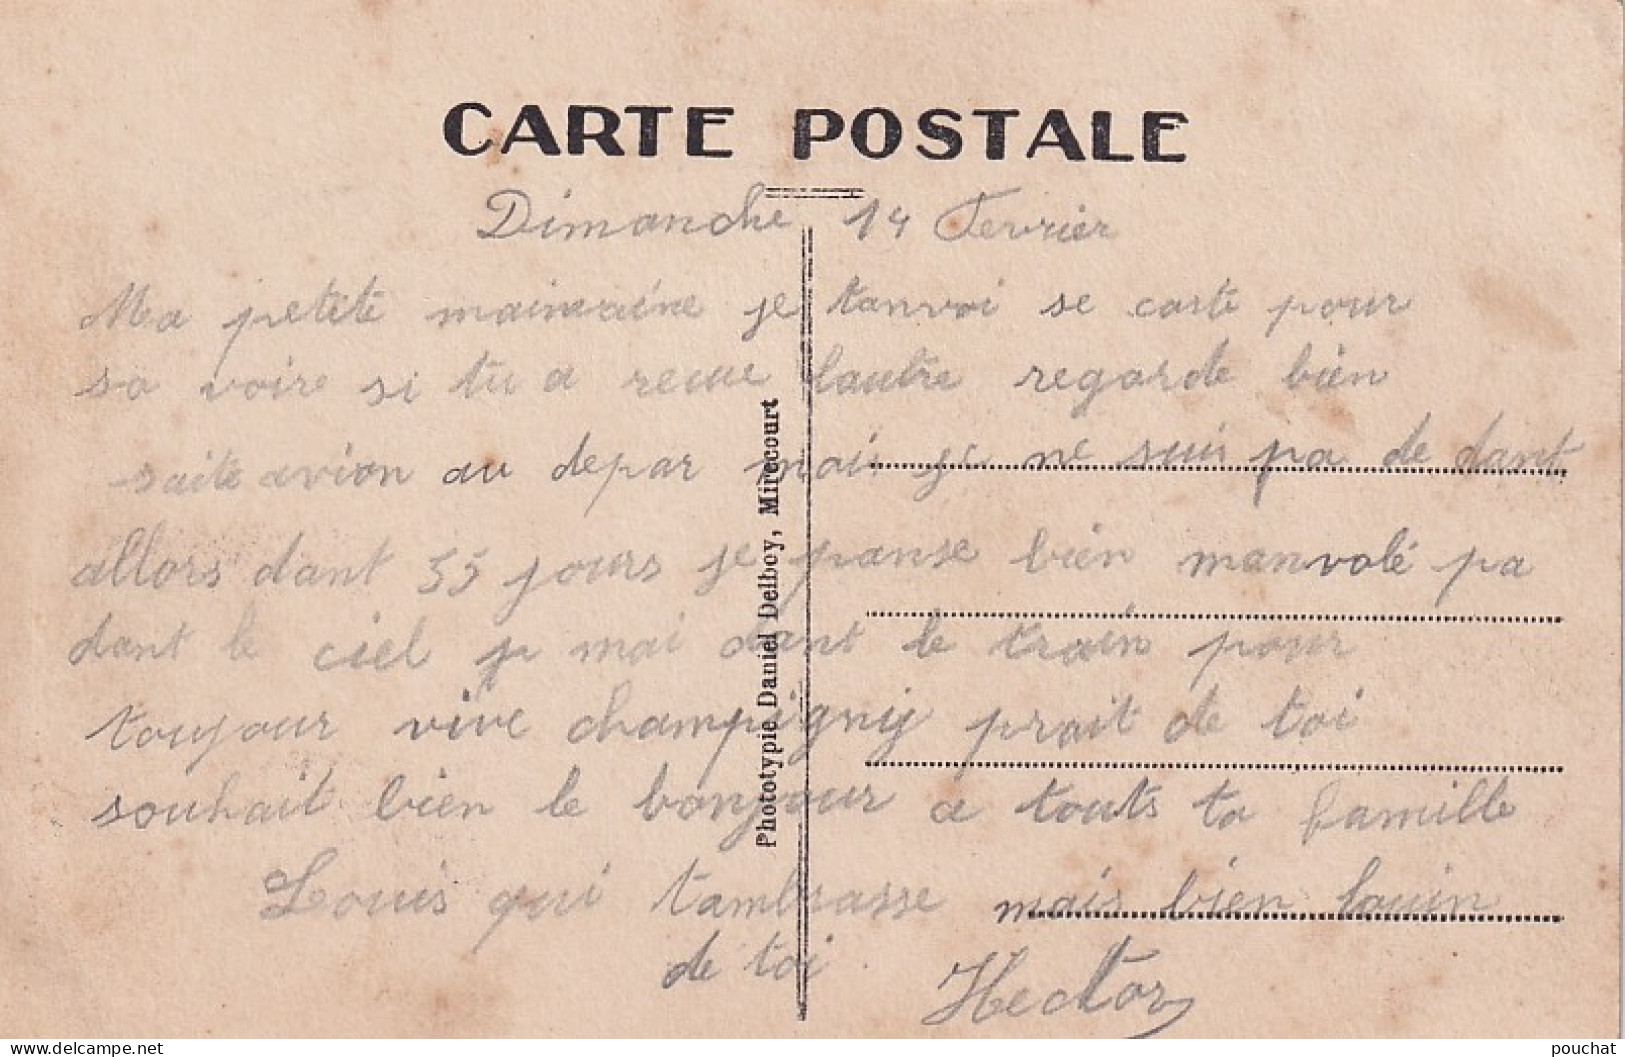 CARTE POSTALE
Dimanche 14 Fevrier
Ma petite je tanvoi se carte pour
sa voire si tu a recue lautre regarde bien
saite avion au depar mais je ne suis pa de dant
allors dant 55 jours je panse bien manvolé pa
dant le ciel mai dant le train pour
toujour vive champigny prait de toi
souhait bien le bonjour a touts ta famille
Louis qui tambrasse mais bien louin
de toi.
Hector
Phototypie Daniel Delboy, Mirecourt
pouchat